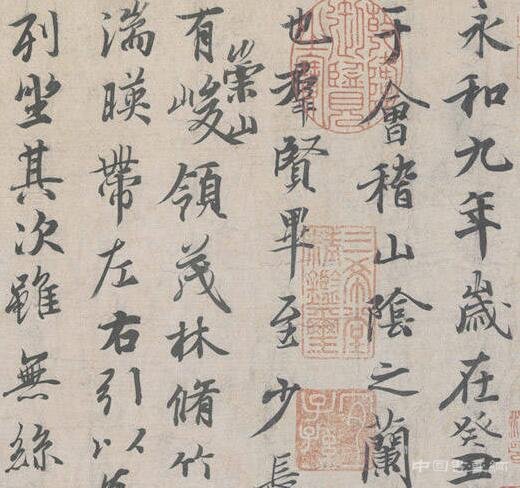 永和九年歲在癸丑
于會稽山陰之蘭
也羣賢畢至少長
有崇山峻領茂林脩竹
湍暎帶左右引以
列坐其次雖無絲
三希堂精鑑璽
宜子孫